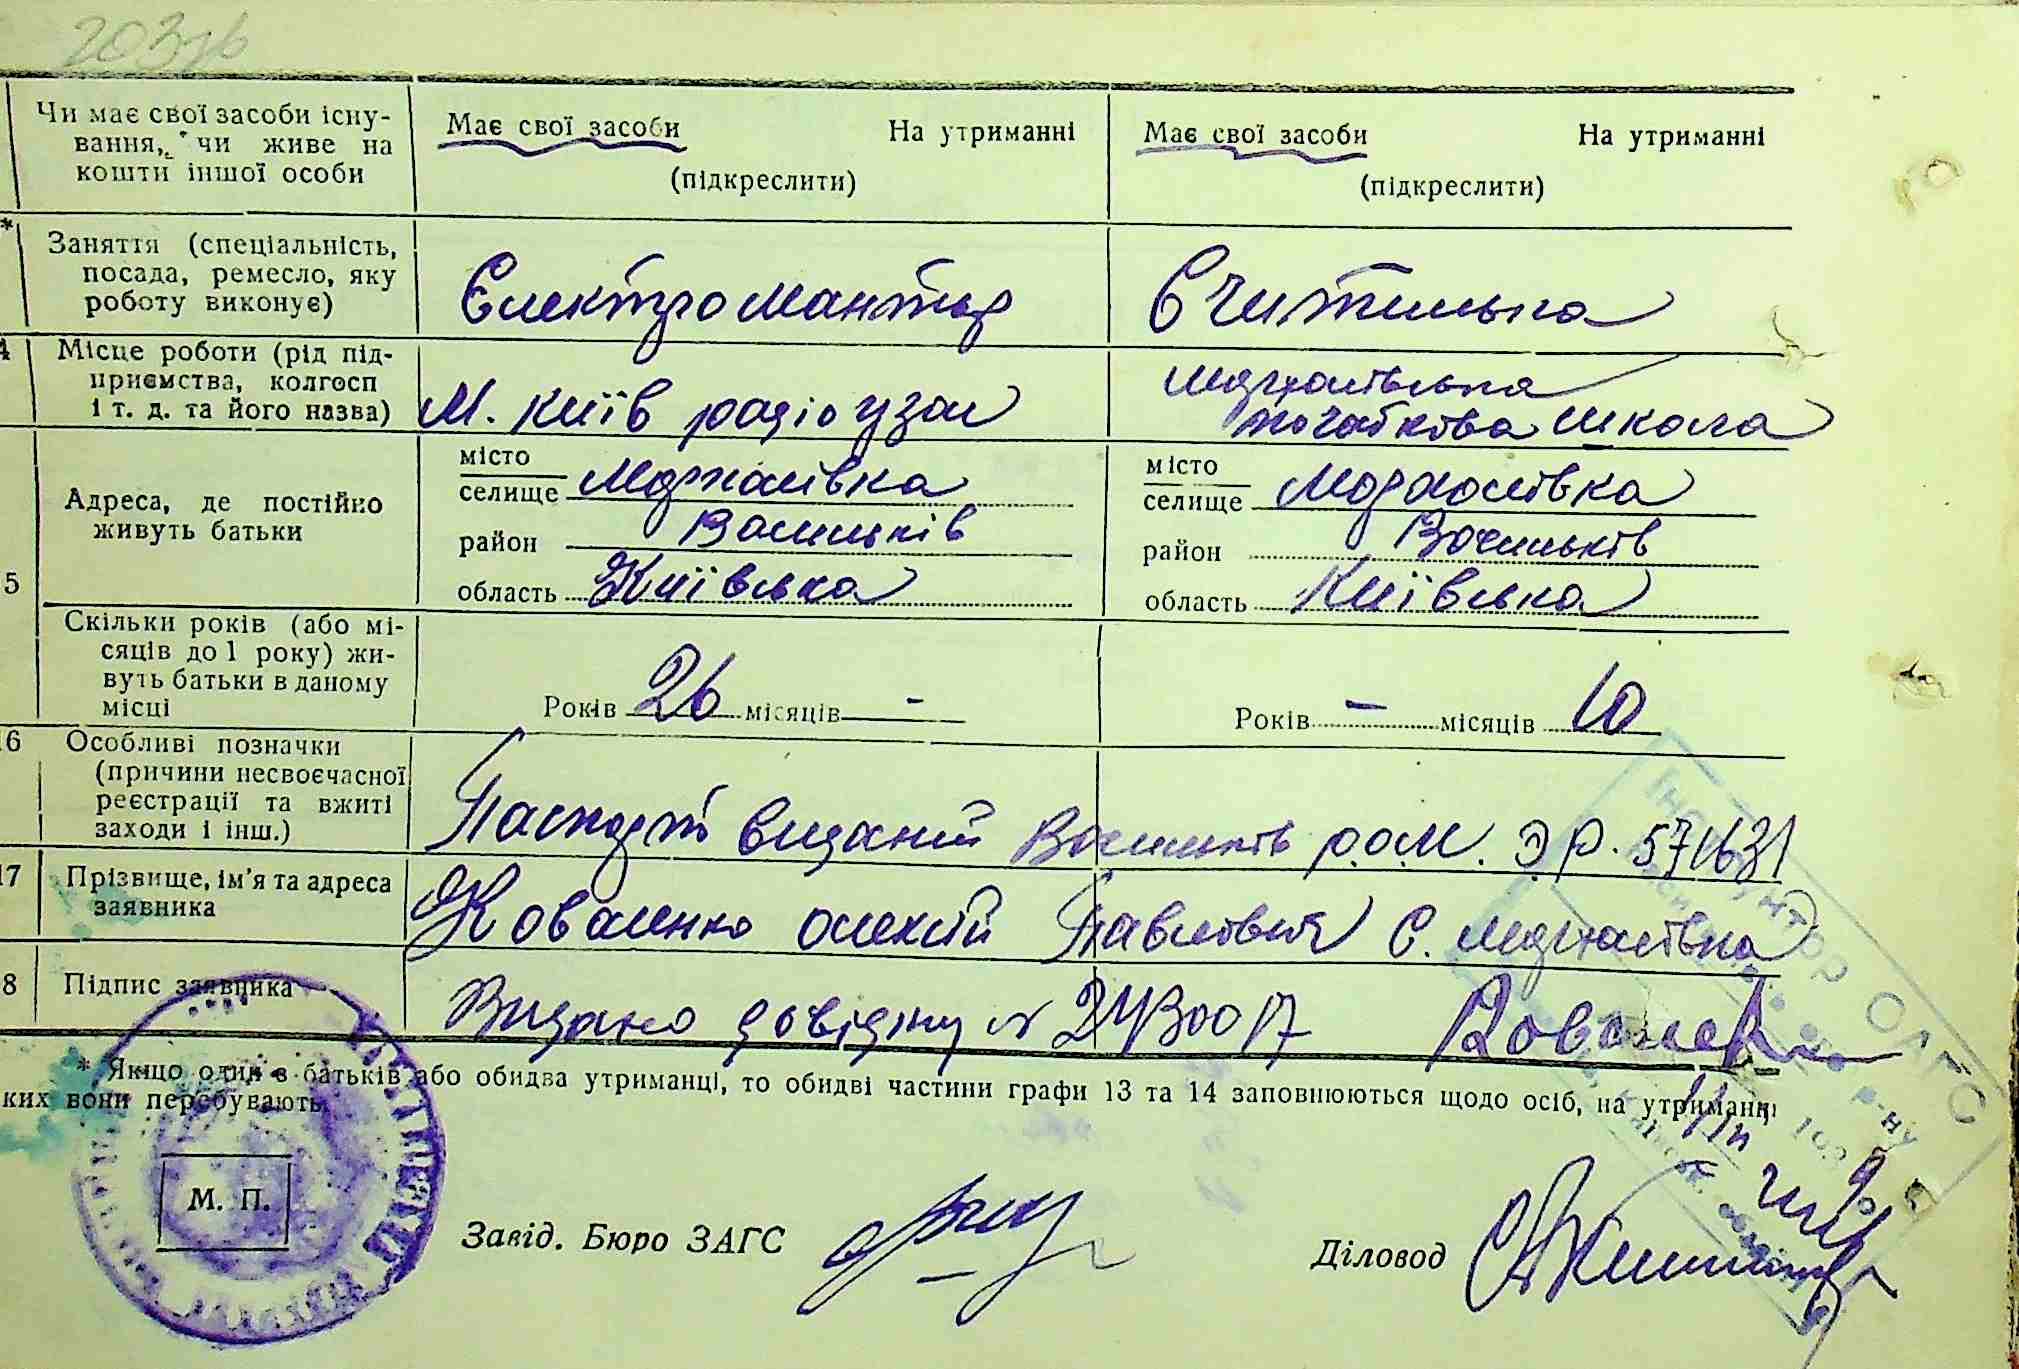 203зв
Чи має свої засоби існу-
вання, чи живе на
кошти іншої особи
Має свої засоби На утриманні
(підкреслити)
Має свої засоби На утриманні
(підкреслити)
*
Заняття (спеціальність,
посада, ремесло, яку
роботу виконує)
Електромантьор
Счителька
4
Місце роботи (рід під-
приємства, колгосп
і т. д. та його назва)
М. Київ радіо узол
Мархалівська
початкова школа
5
Адреса, де постійно
живуть батьки
місто
селище Мархалівка
район Васильків
область Київська
місто
селище Мархалівка
район Васильків
область Київська
Скільки років (або мі-
сяців до 1 року) жи-
вуть батьки в даному
місці
Років 26 місяців -
Років - місяців 10
16
Особливі позначки
(причини несвоєчасної
реєстрації та вжиті
заходи і інш.)
Паспорт виданий Васильків р.о.М. ЭР. 571631
17
Прізвище, ім'я та адреса
заявника
Коваленко Олексій Павлович С. Мархалівка
8
Підпис заявника
Видано довідку № 2430017
* Якщо один з батьків або обидва утриманці, то обидві частини графи 13 та 14 заповнюються щодо осіб, на утриманні
ких вони перебувають.
М. П.
Завід. Бюро ЗАГС
Діловод
Інспектор ОАГС